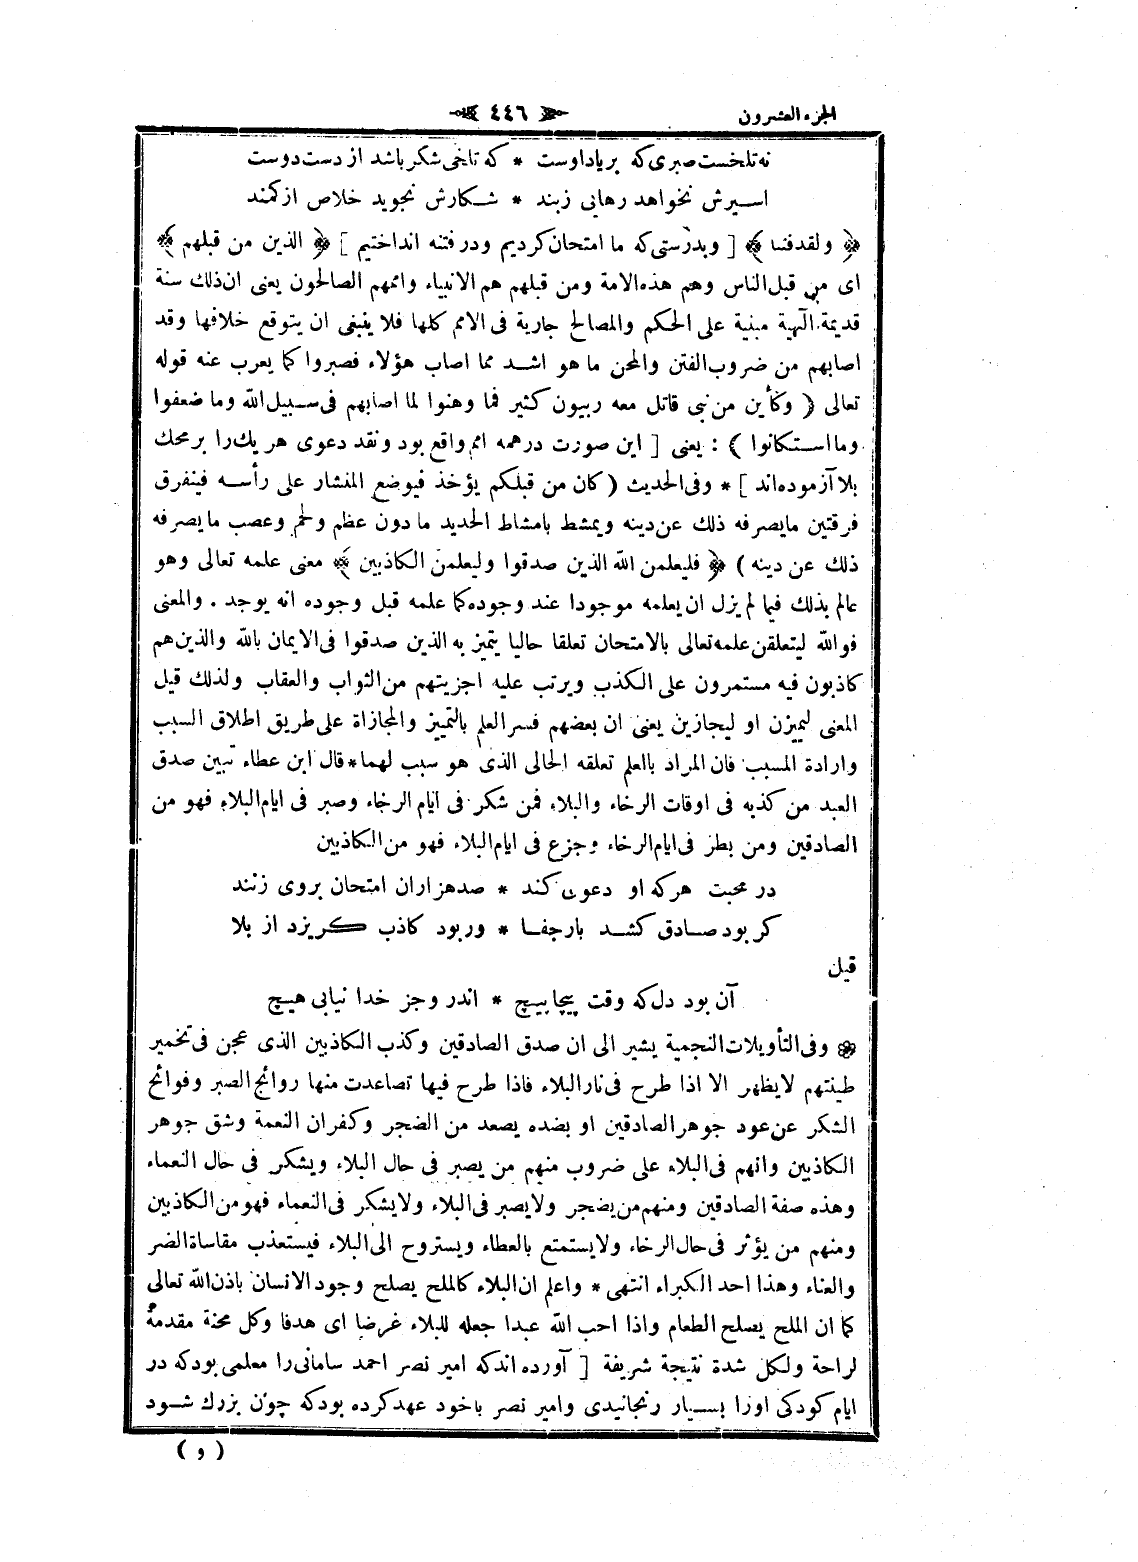 الجزء العشرون
٤٤٦
نه تلخست صبرى كه بر ياد اوست * كه تلخى شكر باشد از دست دوست
اسيرش نخواهد رهايى زبند * شكارش نجويد خلاص از كمند
﴿ ولقد فتنا ﴾ [ وبدرستى كه ما امتحان كرديم ودر فتنه انداختيم ] ﴿ الذين من قبلهم ﴾
اى من قبل الناس وهم هذه الامة ومن قبلهم هم الانبياء واممهم الصالحون يعنى ان ذلك سنة
قديمة الٓهية مبنية على الحكم والمصالح جارية فى الامم كلها فلا ينبغى ان يتوقع خلافها وقد
اصابهم من ضروب الفتن والمحن ما هو اشد مما اصاب هؤلاء فصبروا كما يعرب عنه قوله
تعالى ( وكأين من نبى قاتل معه ربيون كثير فما وهنوا لما اصابهم فى سبيل الله وما ضعفوا
وما استكانوا ) : يعنى [ اين صورت در همه امم واقع بود ونقد دعوى هر يك را بر محك
بلا آزموده اند ] * وفى الحديث ( كان من قبلكم يؤخذ فيوضع المنشار على رأسه فيتفرق
فرقتين ما يصرفه ذلك عن دينه ويمشط بامشاط الحديد ما دون عظم ولحم وعصب ما يصرفه
ذلك عن دينه ) ﴿ فليعلمن الله الذين صدقوا وليعلمن الكاذبين ﴾ معنى علمه تعالى وهو
عالم بذلك فيما لم يزل ان يعلمه موجودا عند وجوده كما علمه قبل وجوده انه يوجد . والمعنى
فوالله ليتعلقن علمه تعالى بالامتحان تعلقا حاليا يتميز به الذين صدقوا فى الايمان بالله والذين هم
كاذبون فيه مستمرون على الكذب ويرتب عليه اجزيتهم من الثواب والعقاب ولذلك قيل
المعنى ليميزن او ليجازين يعنى ان بعضهم فسر العلم بالتمييز والمجازاة على طريق اطلاق السبب
وارادة المسبب فان المراد بالعلم تعلقه الحالى الذى هو سبب لهما * قال ابن عطاء تبين صدق
العبد من كذبه فى اوقات الرخاء والبلاء فمن شكر فى ايام الرخاء وصبر فى ايام البلاء فهو من
الصادقين ومن بطر فى ايام الرخاء وجزع فى ايام البلاء فهو من الكاذبين
در محبت هركه او دعوى كند * صد هزاران امتحان بر وى زنند
كر بود صادق كشد بار جفا * ور بود كاذب كريزد از بلا
قيل
آن بود دل كه وقت پيچاپيچ * اندر و جز خدا نيابى هيچ
وفى التأويلات النجمية يشير الى ان صدق الصادقين وكذب الكاذبين الذى عجن فى تخمير
طينتهم لا يظهر الا اذا طرح فى نار البلاء فاذا طرح فيها تصاعدت منها روائح الصبر وفوائح
الشكر عن عود جوهر الصادقين او بضده يصعد من الضجر وكفران النعمة وشق جوهر
الكاذبين وانهم فى البلاء على ضروب منهم من يصبر فى حال البلاء ويشكر فى حال النعماء
وهذه صفة الصادقين ومنهم من يضجر ولا يصبر فى البلاء ولا يشكر فى النعماء فهو من الكاذبين
ومنهم من يؤثر فى حال الرخاء ولا يستمتع بالعطاء ويستروح الى البلاء فيستعذب مقاساة الضر
والعناء وهذا احد الكبراء انتهى * واعلم ان البلاء كالملح يصلح وجود الانسان باذن الله تعالى
كما ان الملح يصلح الطعام واذا احب الله عبدا جعله للبلاء غرضا اى هدفا وكل محنة مقدمة
لراحة ولكل شدة نتيجة شريفة [ آورده اندكه امير نصر احمد سامانى را معلمى بودكه در
ايام كودكى اورا بسيار رنجانيدى وامير نصر باخود عهد كرده بودكه چون بزرك شود
( و )